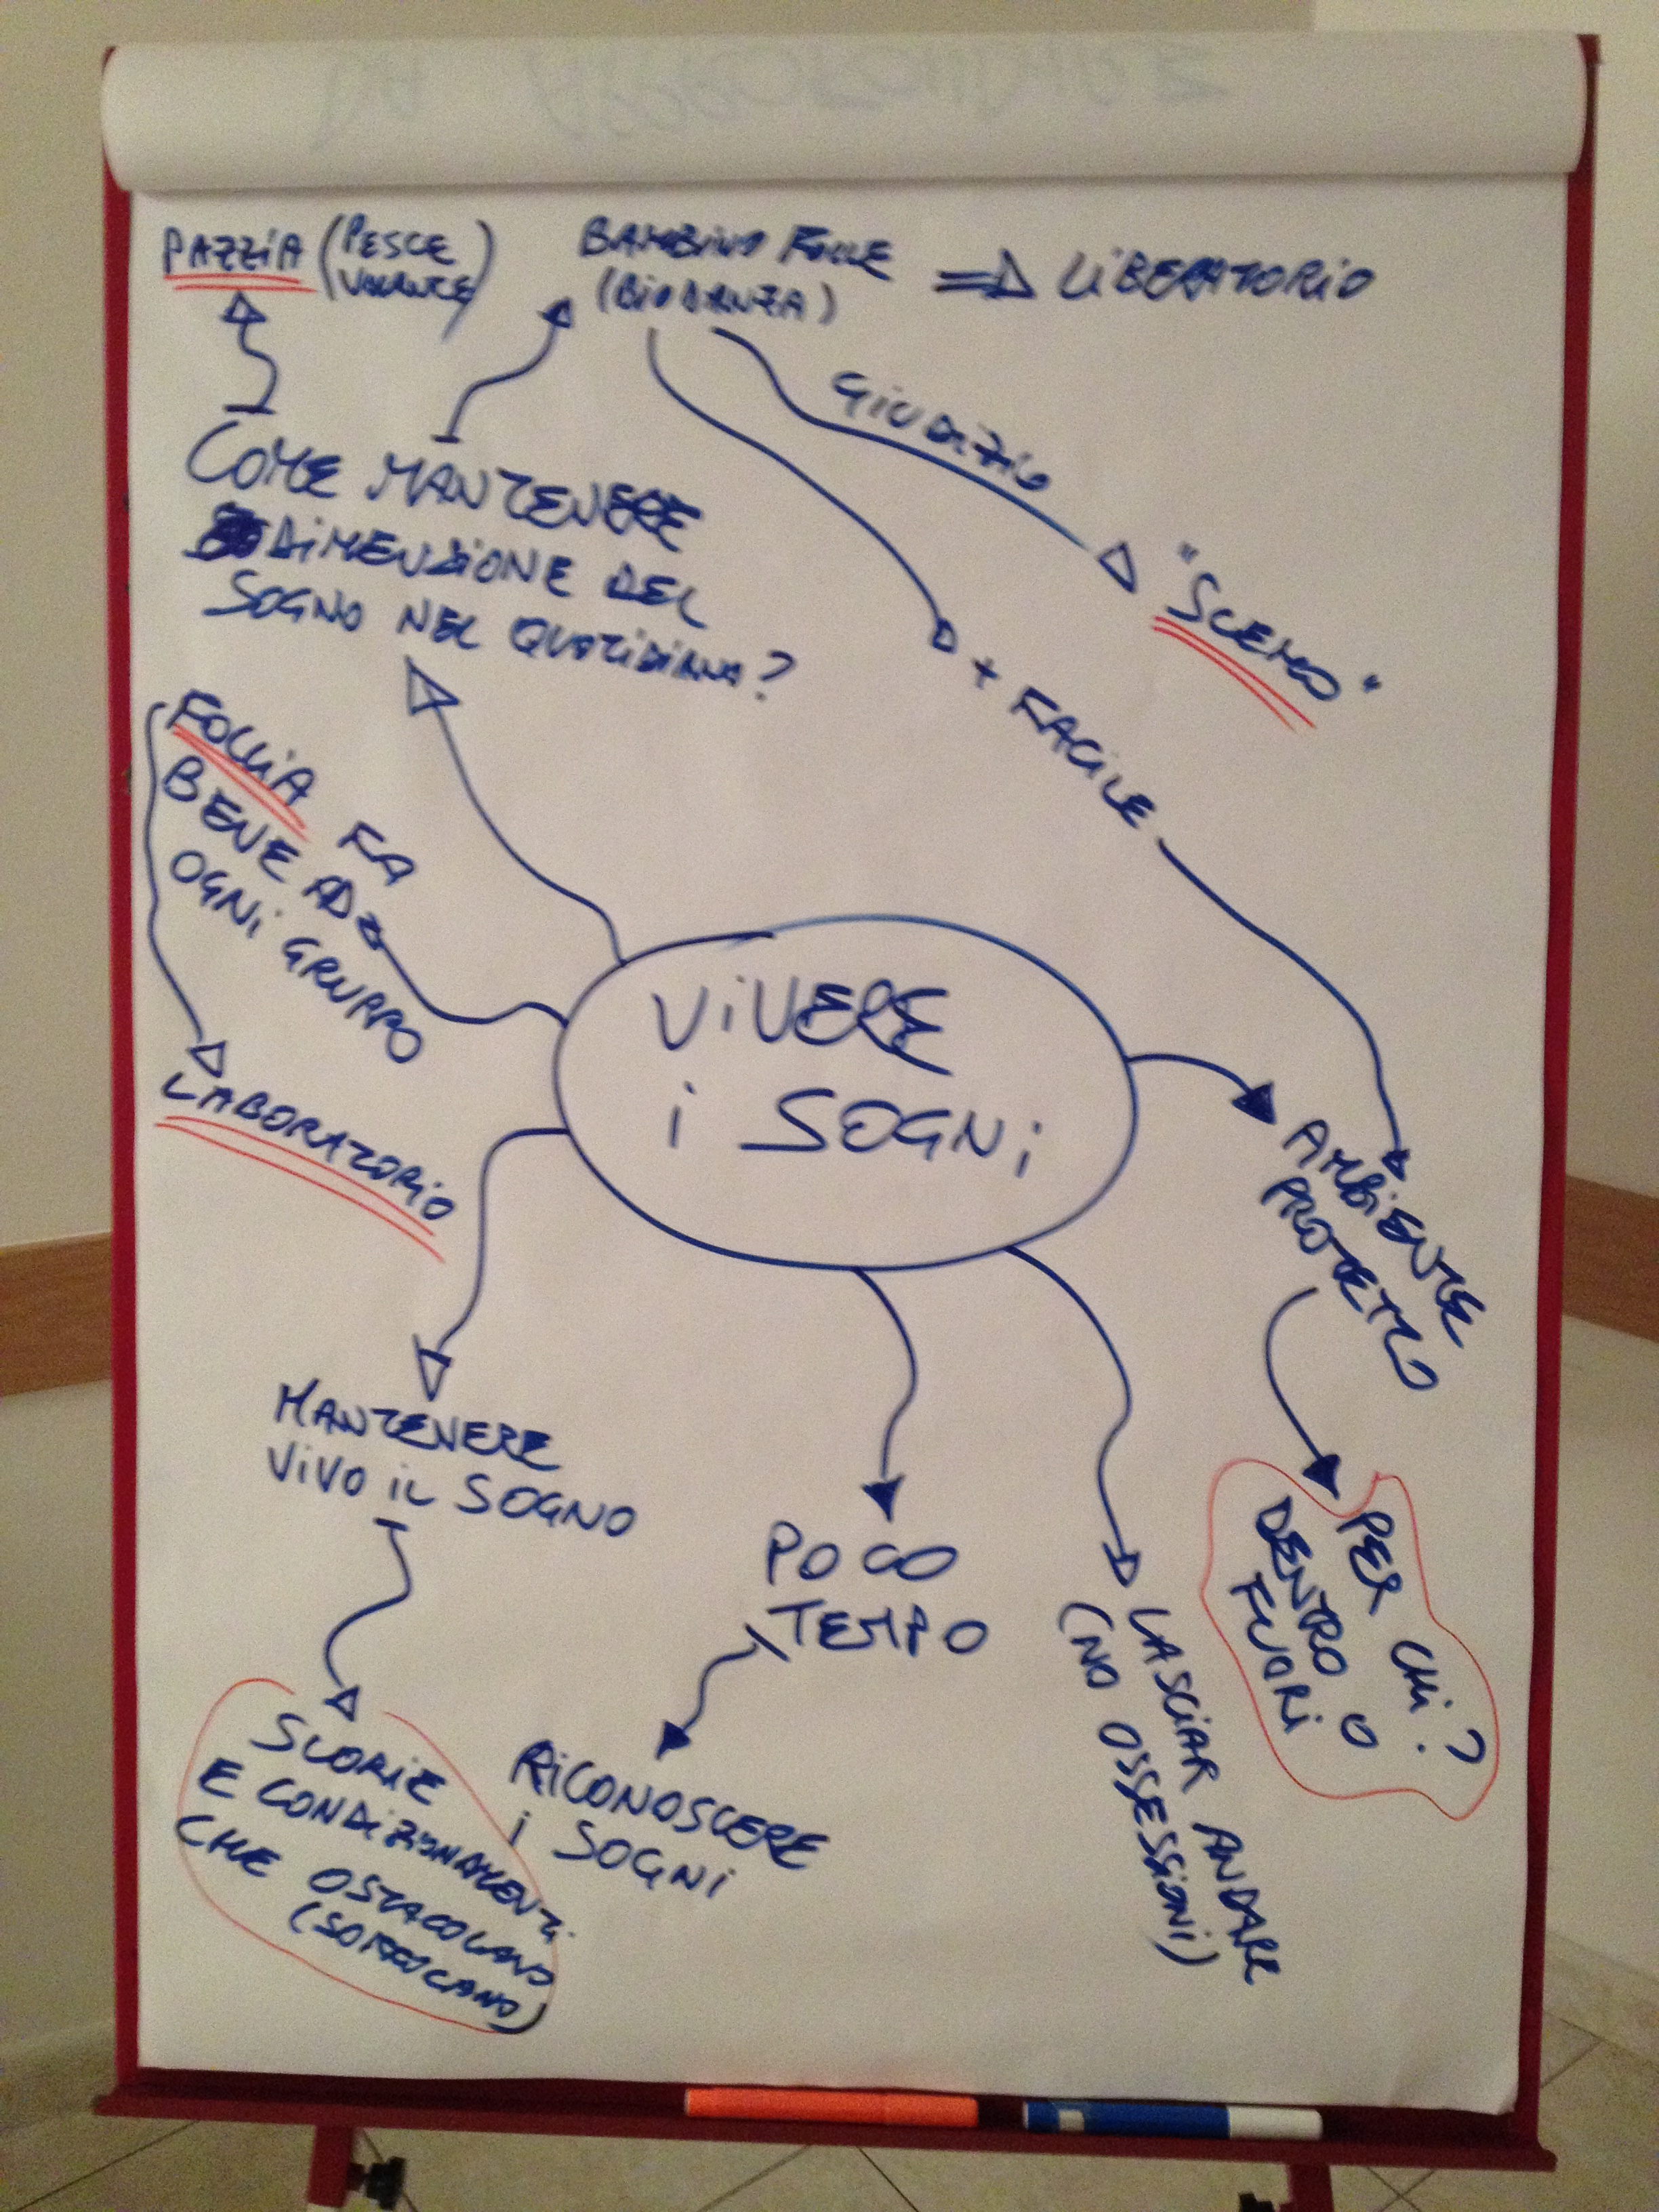 PAZZIA (PESCE
VOLANTE)
BAMBINO FOLLE
(BIODANZA)
⇒ LIBERATORIO
GIUDIZIO
"SCEMO"
+ FACILE
COME MANTENERE
DIMENSIONE DEL
SOGNO NEL QUOTIDIANO?
FOLLIA FA
BENE AD
OGNI GRUPPO
LABORATORIO
VIVERE
I SOGNI
AMBIENTE
PROTETTO
PER CHI?
DENTRO O
FUORI
MANTENERE
VIVO IL SOGNO
SCORIE
E CONDIZIONAMENTI
CHE OSTACOLANO
(SOFFOCANO)
POCO
TEMPO
RICONOSCERE
I SOGNI
LASCIAR ANDARE
(NO OSSESSIONI)